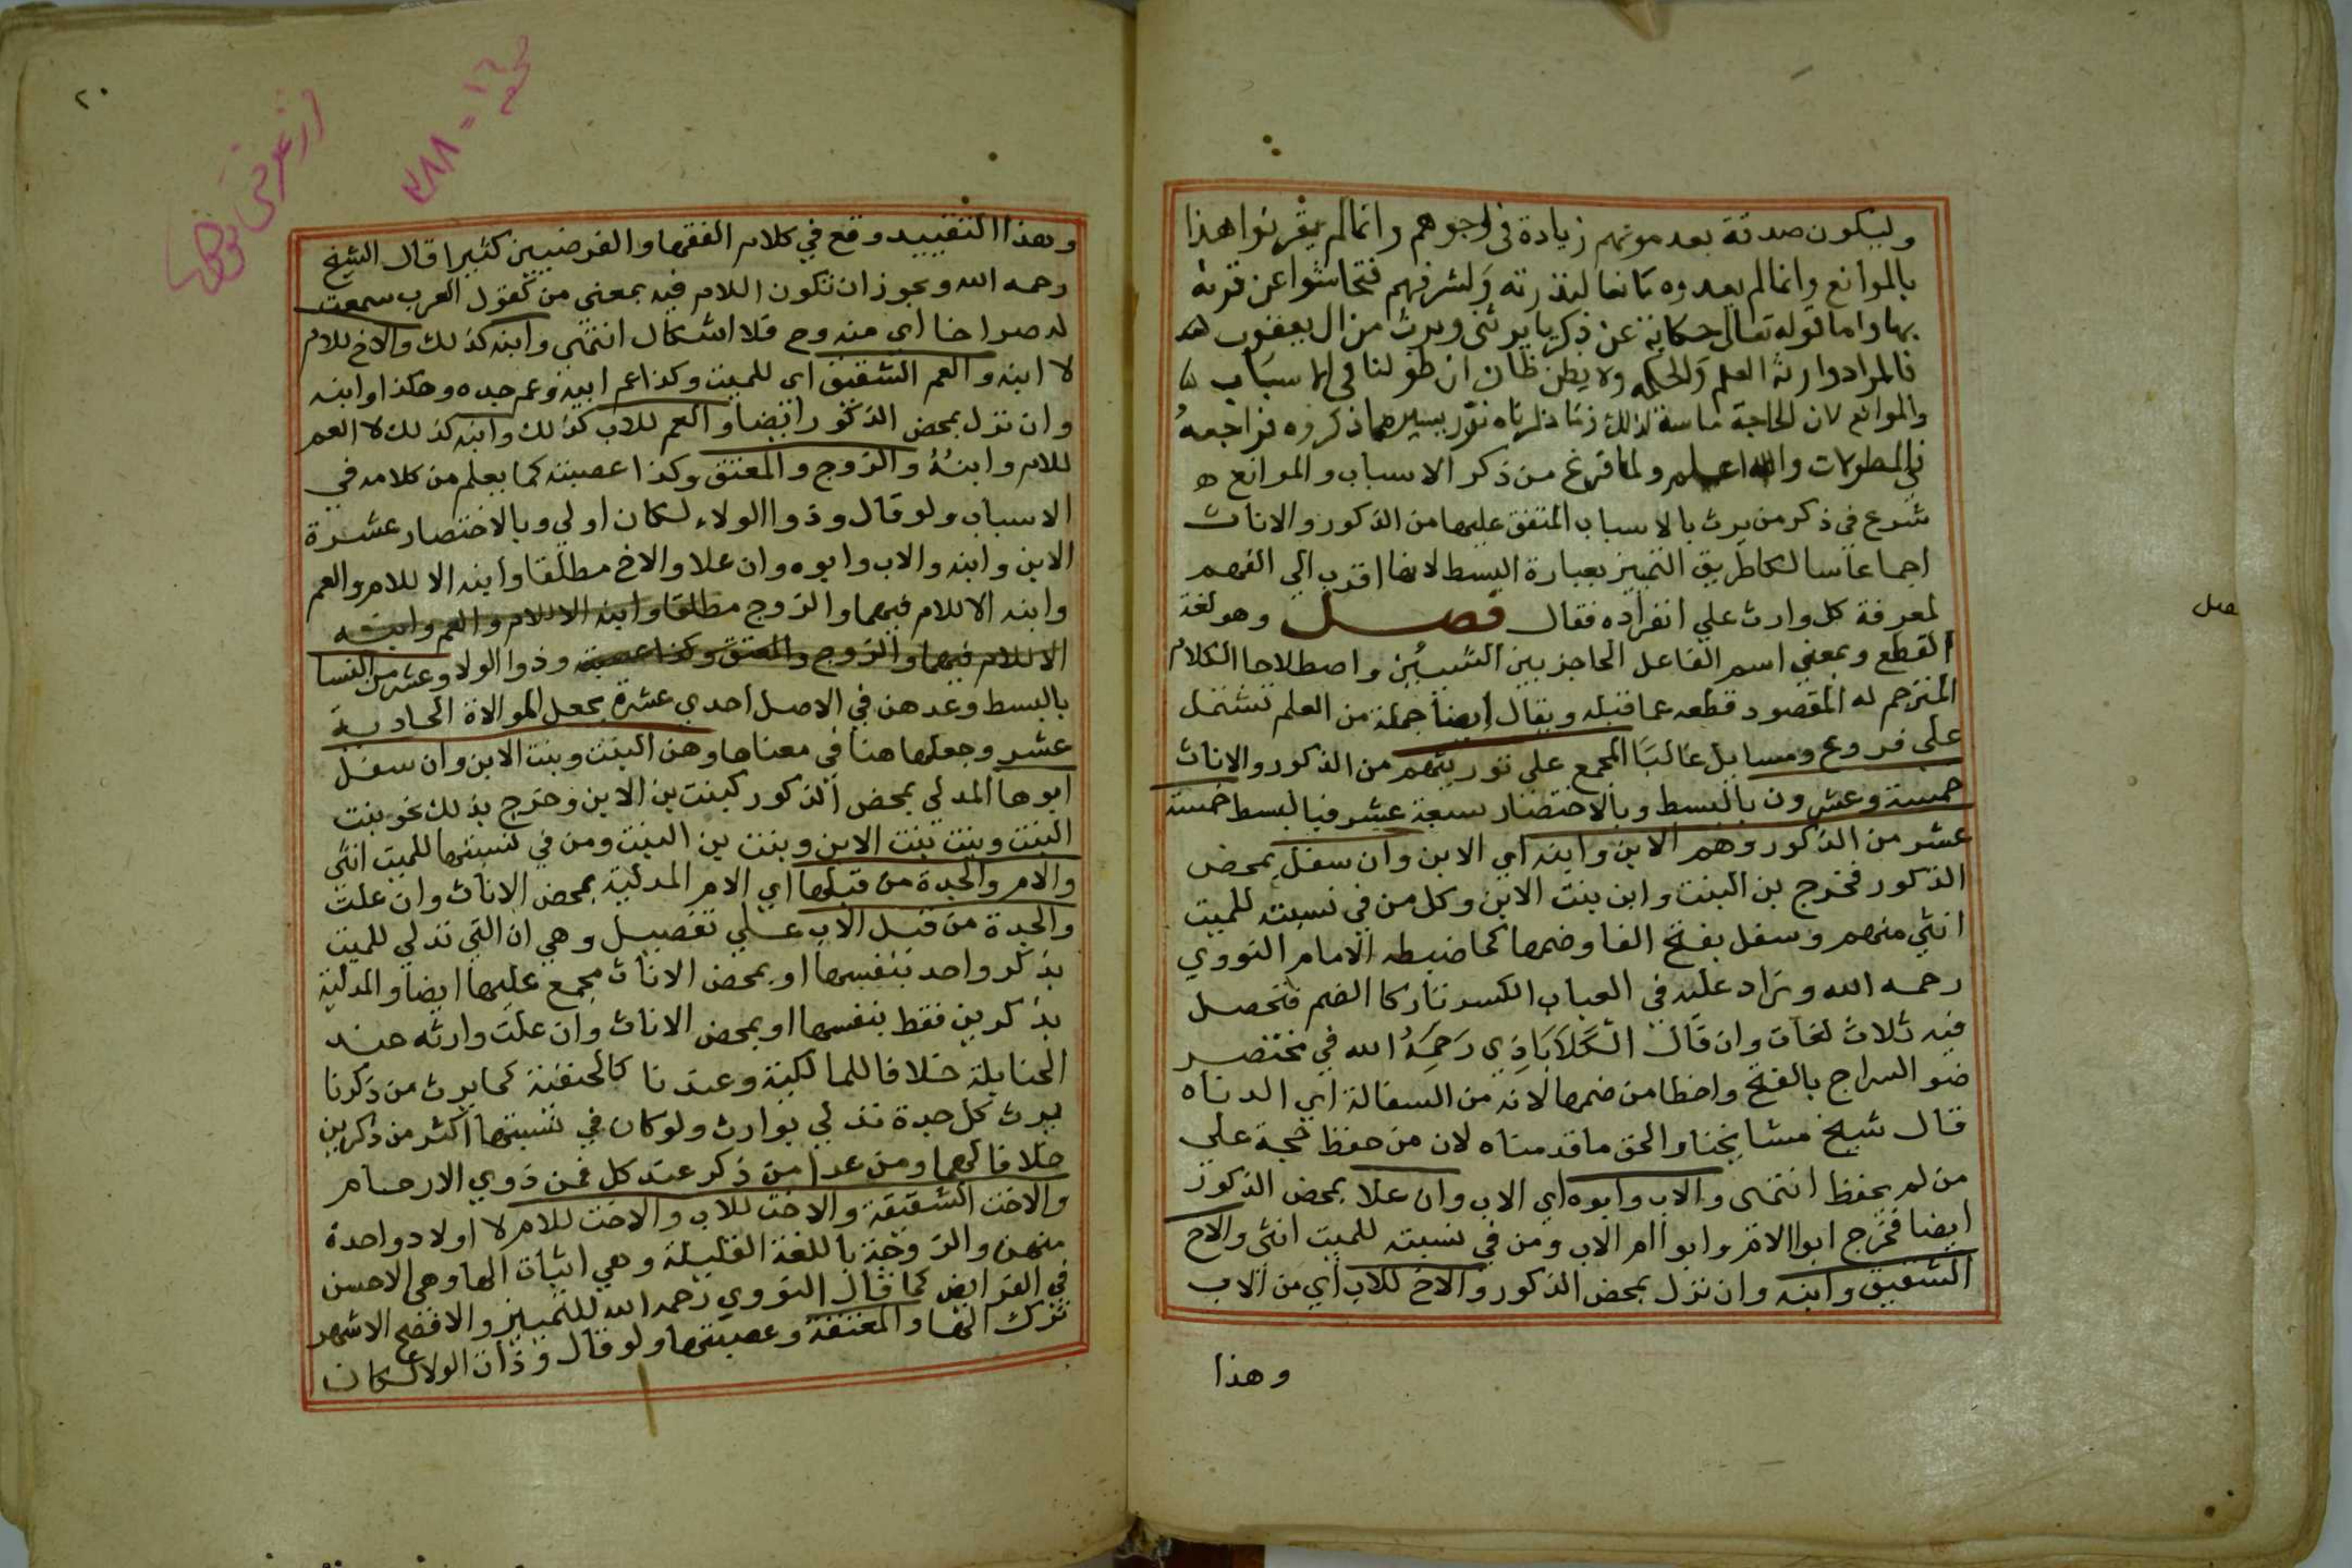 وليكون صدقة بعد موتهم زيادة في اجورهم وانما لم يقرنوا هذا
بالموانع وانما لم يعدوه مانعا لندرته ولشرفهم فتحاشوا عن قرنه
بها واما قوله تعالى حكاية عن زكريا يرثني ويرث من ال يعقوب
فالمراد وارثة العلم والحكمة ولا يظن ظان ان طولنا في الاسباب
والموانع لان الحاجة ماسة لذلك وما ذكرناه نزر يسير مما ذكروه فراجعه
في المطولات والله اعلم ولما فرغ من ذكر الاسباب والموانع
شرع في ذكر من يرث بالاسباب المتفق عليها من الذكور والاناث
اجماعا سالكا طريق التمييز بعبارة البسط لانها اقرب الي الفهم
لمعرفة كل وارث علي انفراده فقال فصل وهو لغة
القطع وبمعني اسم الفاعل الحاجز بين الشيئين واصطلاحا الكلام
المترجم له المقصود قطعه عما قبله ويقال ايضا جملة من العلم تشتمل
علي فروع ومسايل غالبا المجمع علي توريثهم من الذكور والاناث
خمسة وعشرون بالبسط وبالاختصار سبعة عشر فبالبسط خمسة
عشر من الذكور وهم الابن وابنه اي الابن وان سفل بمحض
الذكور فخرج بن البنت وابن بنت الابن وكل من في نسبته للميت
انثي منهم وسفل بفتح الفا وضمها كما ضبطه الامام النووي
رحمه الله وزاد عليه في العباب الكسر تاركا الضم فتحصل
فيه ثلاث لغات وان قال الكلاباذي رحمه الله في مختصر
ضو السراج بالفتح واخطا من ضمها لانه من السفالة اي الدناه
قال شيخ مشايخنا والحق ما قدمناه لان من حفظ حجة علي
من لم يحفظ انتهى والاب وابوه اي الاب وان علا بمحض الذكور
ايضا فخرج ابوا الام وابو ام الاب ومن في نسبته للميت انثى والاخ
الشقيق وابنه وان نزل بمحض الذكور والاخ للاب اي من الاب
وهذا
٢٠
وهذا التقييد وقع في كلام الفقها والفرضيين كثيرا قال الشيخ
رحمه الله ويجوز ان تكون اللام فيه بمعني من كقول العرب سمعت
له صراخا اي منه وح فلا اشكال انتهي وابنه كذلك والاخ للام
لا ابنه والعم الشقيق اي للميت وكذا عم ابيه وعم جده وهكذا وابنه
وان نزل بمحض الذكور ايضا والعم للاب كذلك وابنه كذلك لا العم
للام وابنه والزوج والمعتق وكذا عصبته كما يعلم من كلامه في
الاسباب ولو قال وذوا الولاء لكان اولي وبالاختصار عشرة
الابن وابنه والاب وابوه وان علا والاخ مطلقا وابنه الا للام والعم
وابنه الا للام فيهما والزوج مطلقا وابنه الا للام والعم وابنه
الا للام فيهما والزوج والمعتق وكذا عصبته وذوا الولا وعشر من النسا
بالبسط وعدهن في الاصل احدي عشرة بجعل الموالاة الحادية
عشر وجعلها هنا في معناها وهن البنت وبنت الابن وان سفل
ابوها المدلي بمحض الذكور كبنت بن الابن وخرج بذلك نحو بنت
البنت وبنت بنت الابن وبنت بن البنت ومن في نسبتها للميت انثى
والام والجدة من قبلها اي الام المدلية بمحض الاناث وان علت
والجدة من قبل الاب علي تفصيل وهي ان التي تدلي للميت
بذكر واحد بنفسها او بمحض الاناث مجمع عليها ايضا والمدلية
بذكرين فقط بنفسها او بمحض الاناث وان علت وارثه عند
الحنابلة خلافا للمالكية وعندنا كالحنفية كما يرث من ذكرنا
يرث كل جدة تدلي بوارث ولو كان في نسبتها اكثر من ذكرين
خلافا لهما ومن عدا من ذكر عند كل فمن ذوي الارحام
والاخت الشقيقة والاخت للاب والاخت للام لا اولاد واحدة
منهن والزوجة باللغة القليلة وهي اثبات الها وهي الاحسن
في الفرايض كما قال النووي رحمه الله للتمييز والافصح الاشهر
ترك الها والمعتقة وعصبتها ولو قال وذات الولا لكان